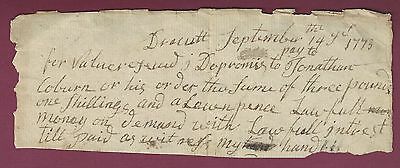 Dracutt September the 14 yd 1773
for Value receud I Do promis to pay to Jonathan
Coburn or his order the sume of three pounds
one Shilling and a Leven pence Lawfull
money on demand with Lawfull intrest
till paid as witness my hand